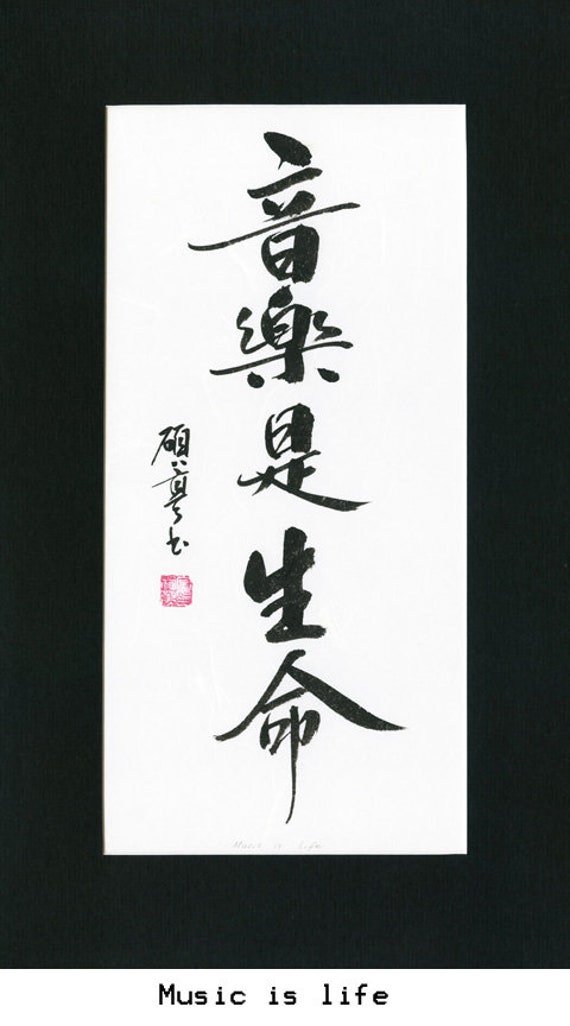 音樂是生命
Music is life
Music is life